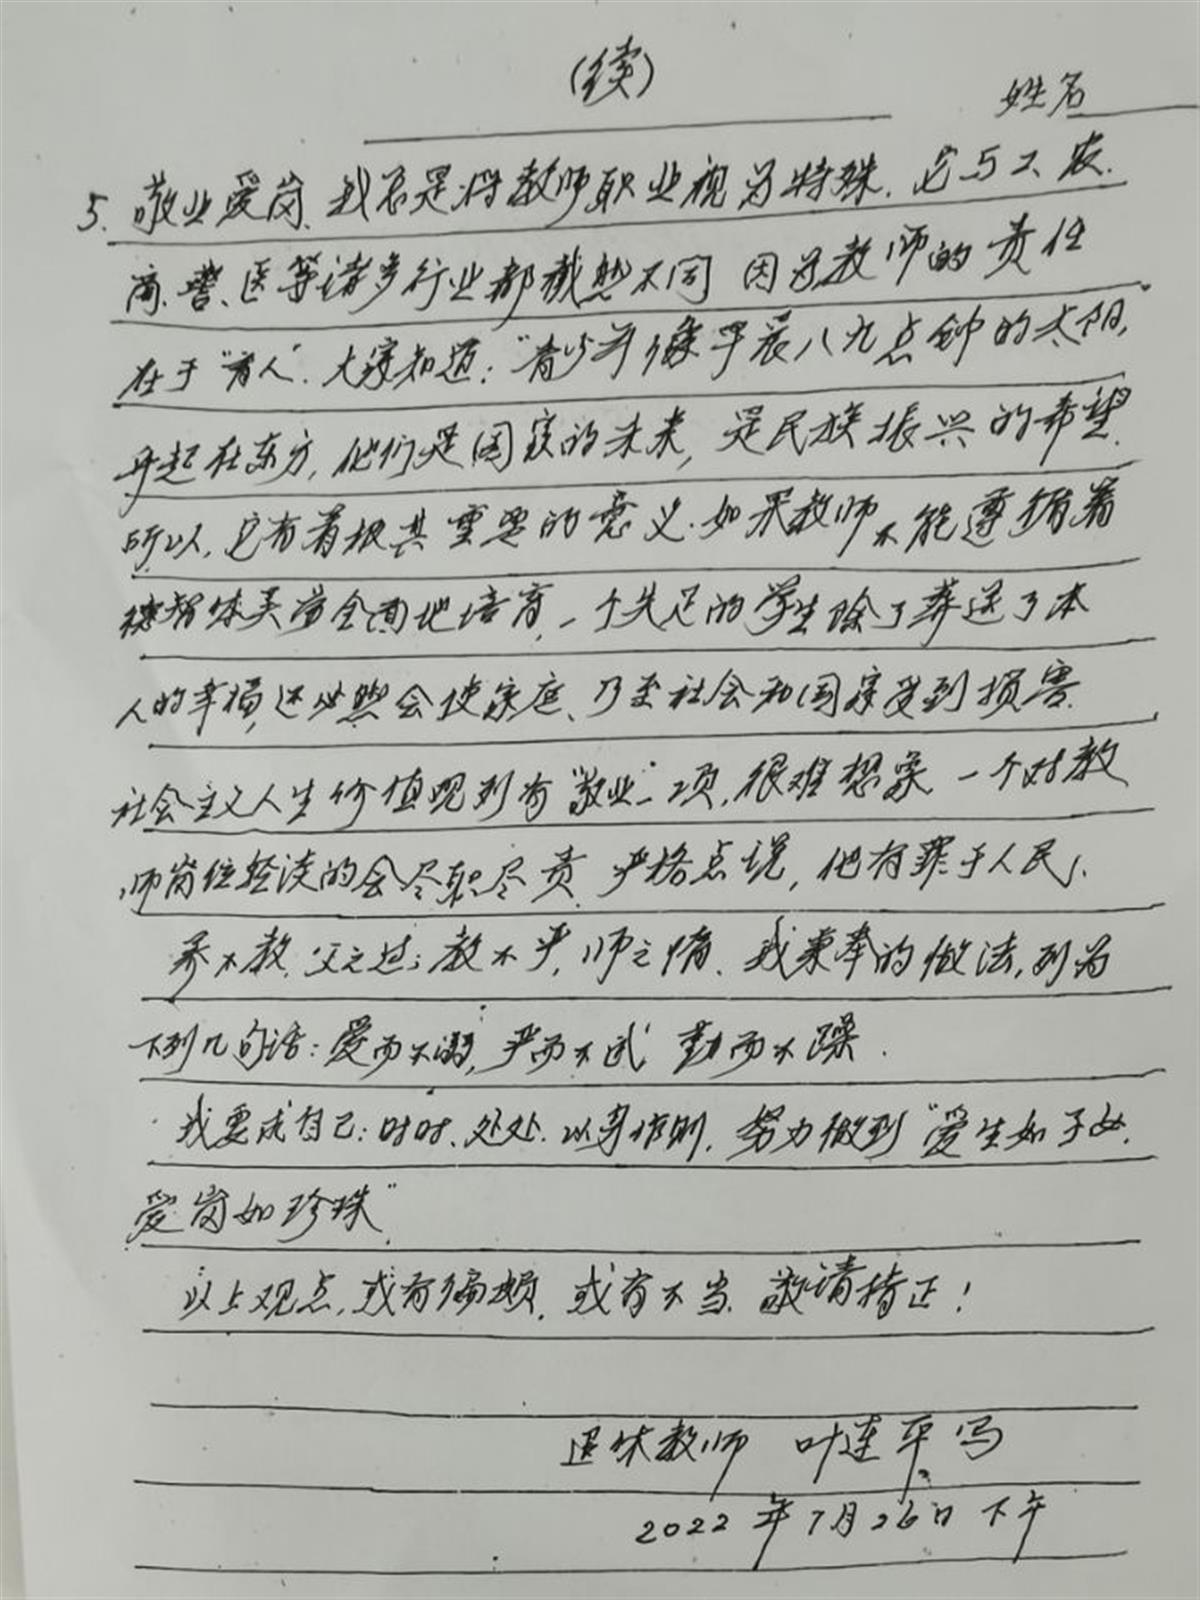 (续)
姓名
5. 敬业爱岗、我总是将教师职业视为特殊. 它与工、农.
商、警、医等诸多行业都截然不同 因为教师的责任
在于"育人". 大家知道: "青少年像早晨八九点钟的太阳,"
升起在东方, 他们是国家的未来, 是民族振兴的希望.
所以, 它有着极其重要的意义. 如果教师不能遵循着
德智体美劳全面地培育, 一个失足的学生除了葬送了本
人的幸福, 还必然会使家庭、乃至社会和国家受到损害.
社会主义人生价值观列有"敬业"一项, 很难想象 一个对教
师岗位轻渎的会尽职尽责. 严格点说, 他有罪于人民!
养不教, 父之过; 教不严, 师之惰. 我秉奉的做法, 列为
下列几句话: 爱而不溺, 严而不试 勤而不躁.
我要求自己: 时时、处处. 以身作则. 努力做到"爱生如子女.
爱岗如珍珠"
以上观点, 或有偏损. 或有不当. 敬请指正!
退休教师 叶连平写
2022年7月26日下午